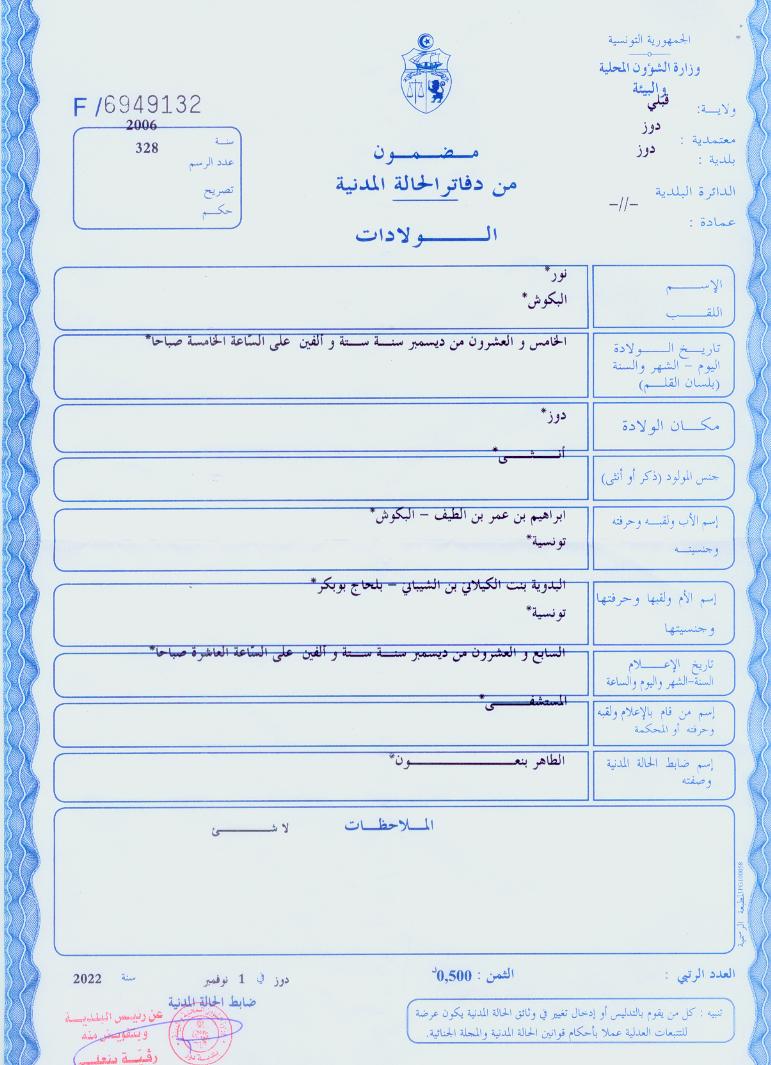 الجمهورية التونسية
وزارة الشؤون المحلية
والبيئة
ولايـة: قبلي
معتمدية : دوز
بلدية : دوز
الدائرة البلدية
عمادة : –//–
F /6949132
سنة 2006
عدد الرسم 328
تصريح
حكم
مضمون
من دفاتر الحالة المدنية
الولادات
الإسم نور*
اللقب البكوش*
تاريخ الولادة
اليوم – الشهر والسنة
(بلسان القلم)
الخامس و العشرون من ديسمبر سنة ستة و ألفين على السّاعة الخامسة صباحا*
مكان الولادة دوز*
جنس المولود (ذكر أو أنثى) أنثى*
إسم الأب ولقبه وحرفته
وجنسيته
ابراهيم بن عمر بن الطيف – البكوش*
تونسية*
إسم الأم ولقبها وحرفتها
وجنسيتها
البدوية بنت الكيلاني بن الشيباني – بلحاج بوبكر*
تونسية*
تاريخ الإعلام
السنة-الشهر واليوم والساعة
السابع و العشرون من ديسمبر سنة ستة و ألفين على السّاعة العاشرة صباحا*
إسم من قام بالإعلام ولقبه
وحرفته أو المحكمة
المستشفى*
إسم ضابط الحالة المدنية
وصفته
الطاهر بنعون*
الملاحظات
لا شئ
العدد الرتبي :
الثمن : 0,500د
دوز في 1 نوفمبر سنة 2022
ضابط الحالة المدنية
تنبيه : كل من يقوم بالتدليس أو إدخال تغيير في وثائق الحالة المدنية يكون عرضة
للتتبعات العدلية عملا بأحكام قوانين الحالة المدنية والمجلة الجنائية.
عن رئيس البلدية
وبتفويض منه
رقية بنعلي
المطبعة الرسمية